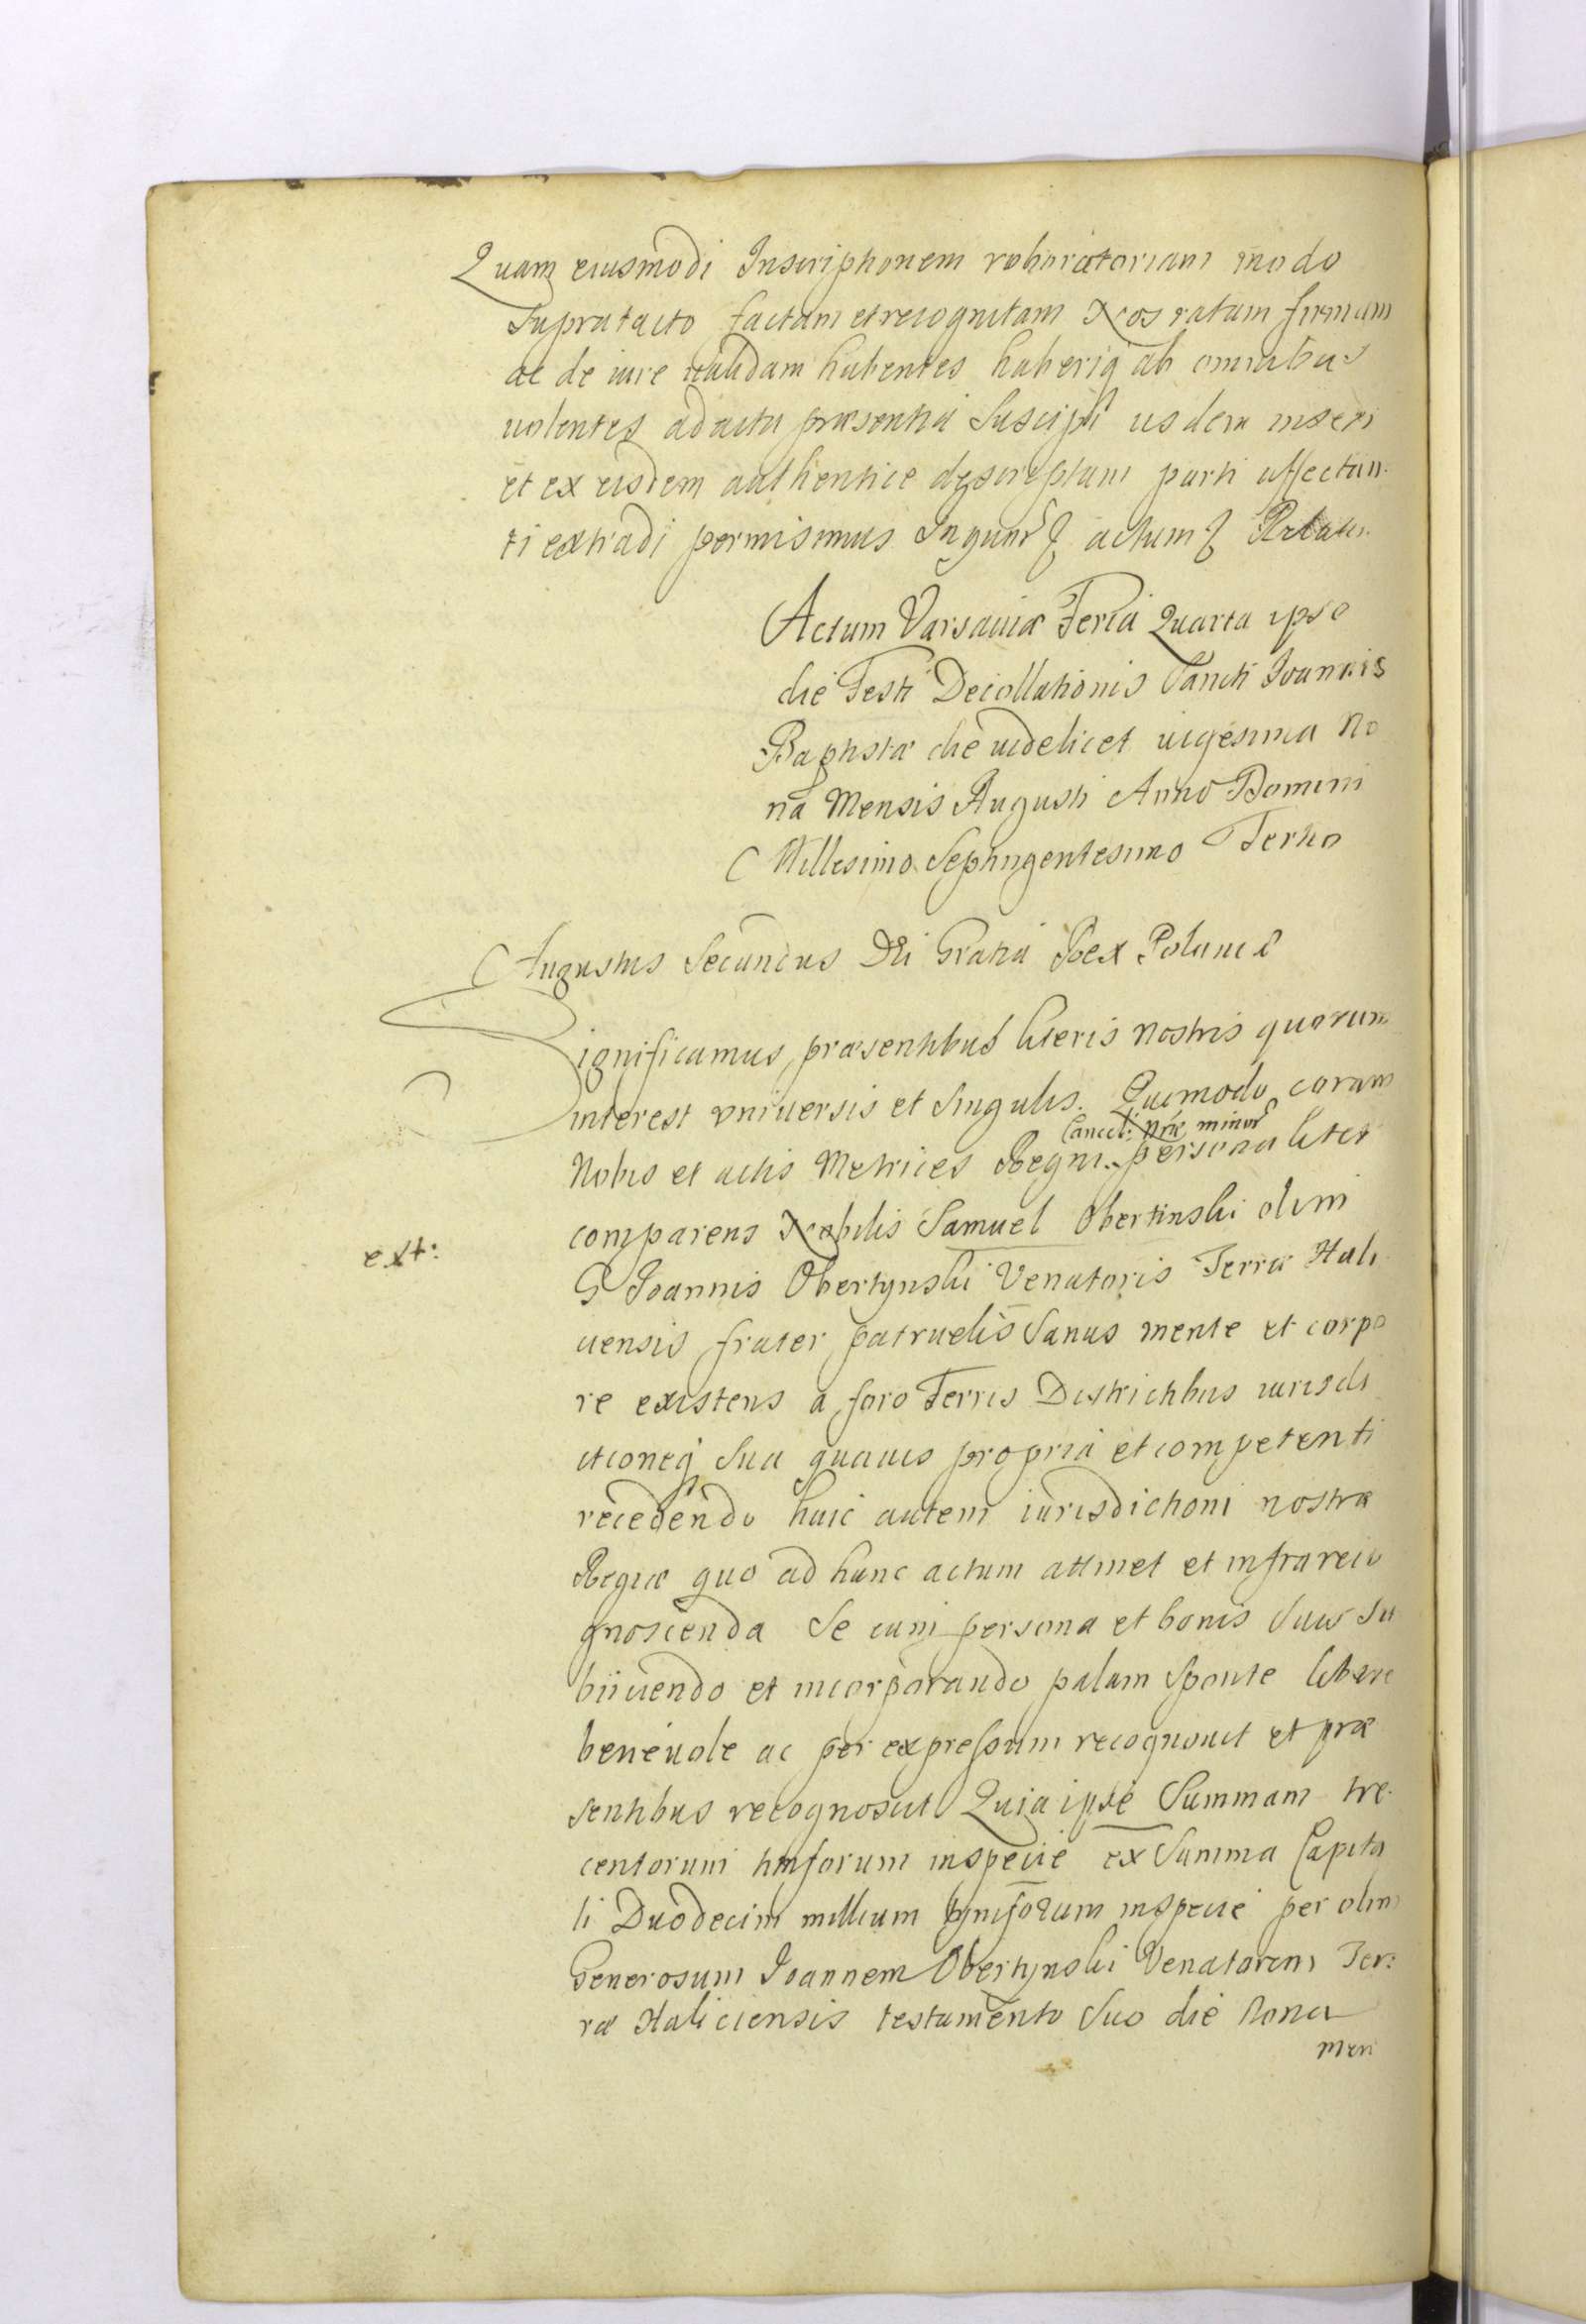 Quam eiusmodi Inscriptionem roboratoriam modo
supratacto factam et recognitam Nos ratam firmam
ac de iure validam habentes haberiq ab omnibus
volentes ad acta præsentia suscipi iisdem inseri
et ex eisdem authentice descriptam parti affectan
ti extradi permisimus In quor actum
Actum Varsaviæ Feria Quarta ipso
die Festi Decollationis Sancti Ioannis
Baptistæ die videlicet vigesima No
na Mensis Augusti Anno Domini
Millesimo Septingentesimo Tertio
Augustus Secundus Dei Gratia Rex Poloniæ
Significamus præsentibus literis nostris quorum
interest vniversis et singulis. Quomodo coram
Cancel: nræ minor
Nobis et actis Metrices Regni personaliter
comparens Nobilis Samuel Obertinski olim
ext:
G Ioannis Obertynski Venatoris Terræ Hali
ciensis frater patruelis sanus mente et corpo
re existens a foro Terris Districtibus iurisdi
ctioneq sua quavis propria et competenti
recedendo huic autem iurisdictioni nostræ
Regiæ quo ad hunc actum attinet et infrareco
gnoscenda se cum persona et bonis suis su
biiciendo et incorporando palam sponte libere
benevole ac per expressum recognovit et præ
sentibus recognoscit Quia ipse Summam tre
centorum tinforum in specie ex Summa Capita
li Duodecim millium tynfforum in specie per olim
Generosum Ioannem Obertynski Venatorem Ter:
ræ Haliciensis testamento suo die Nona
men